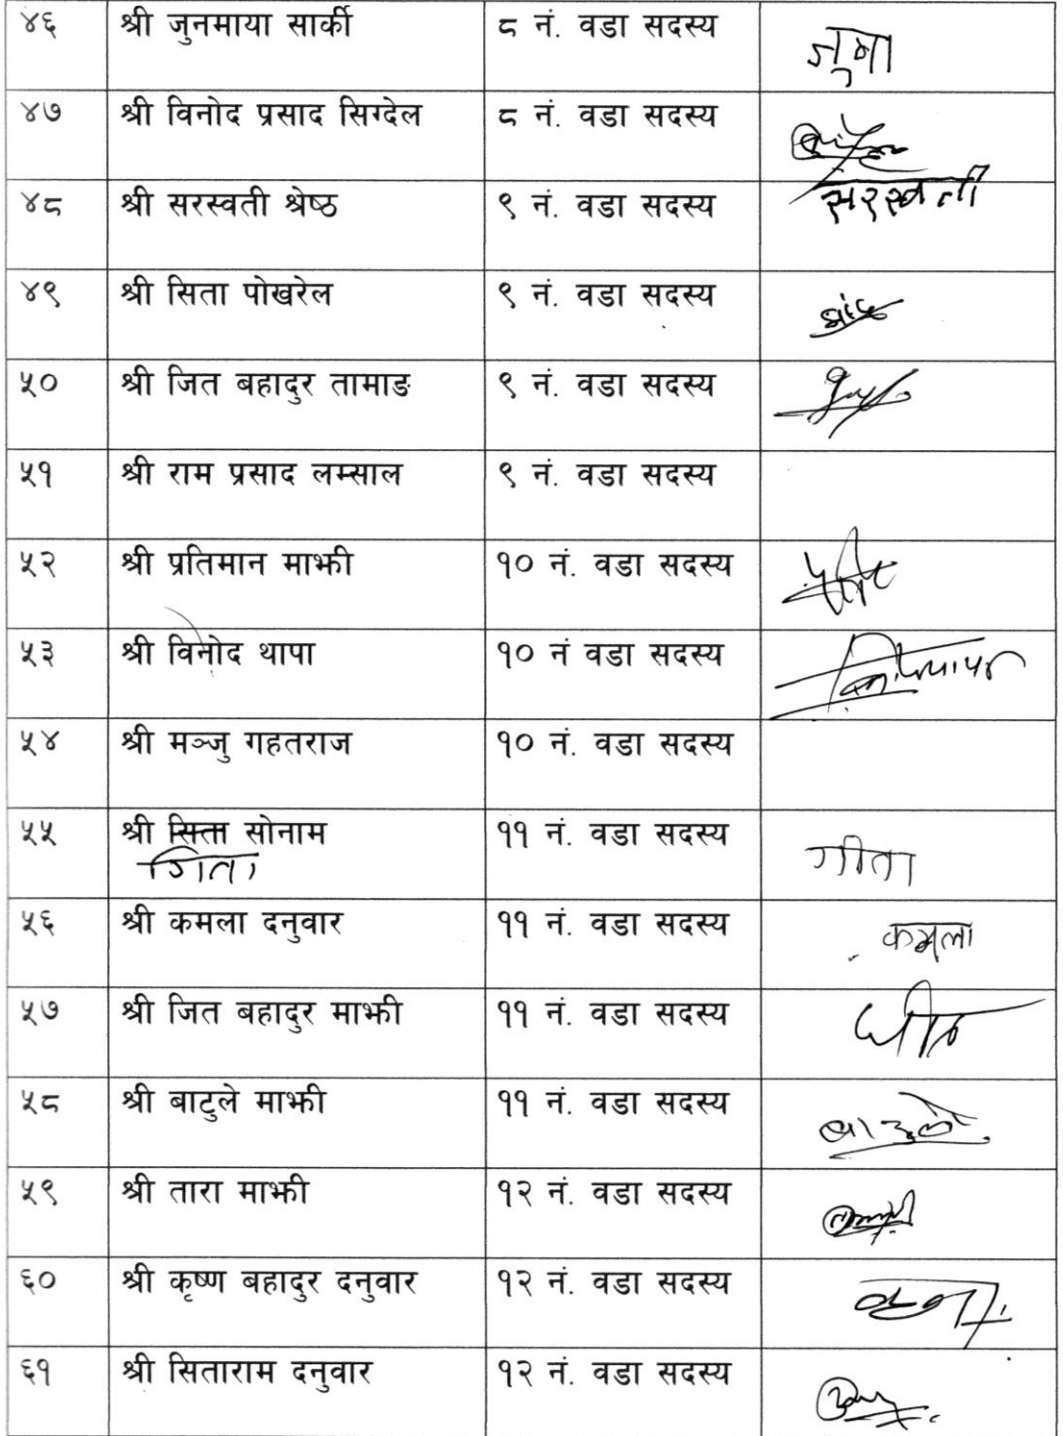 ४६ श्री जुनमाया सार्की ८ नं. वडा सदस्य जुमा
४७ श्री विनोद प्रसाद सिग्देल ८ नं. वडा सदस्य
४८ श्री सरस्वती श्रेष्ठ ९ नं. वडा सदस्य सरस्वती
४९ श्री सिता पोखरेल ९ नं. वडा सदस्य
५० श्री जित बहादुर तामाङ ९ नं. वडा सदस्य
५१ श्री राम प्रसाद लम्साल ९ नं. वडा सदस्य
५२ श्री प्रतिमान माझी १० नं. वडा सदस्य
५३ श्री विनोद थापा १० नं वडा सदस्य
५४ श्री मञ्जु गहतराज १० नं. वडा सदस्य
५५ श्री सिता सोनाम ११ नं. वडा सदस्य गीता
गिता
५६ श्री कमला दनुवार ११ नं. वडा सदस्य कमला
५७ श्री जित बहादुर माझी ११ नं. वडा सदस्य
५८ श्री बाटुले माझी ११ नं. वडा सदस्य
५९ श्री तारा माझी १२ नं. वडा सदस्य
६० श्री कृष्ण बहादुर दनुवार १२ नं. वडा सदस्य
६१ श्री सिताराम दनुवार १२ नं. वडा सदस्य